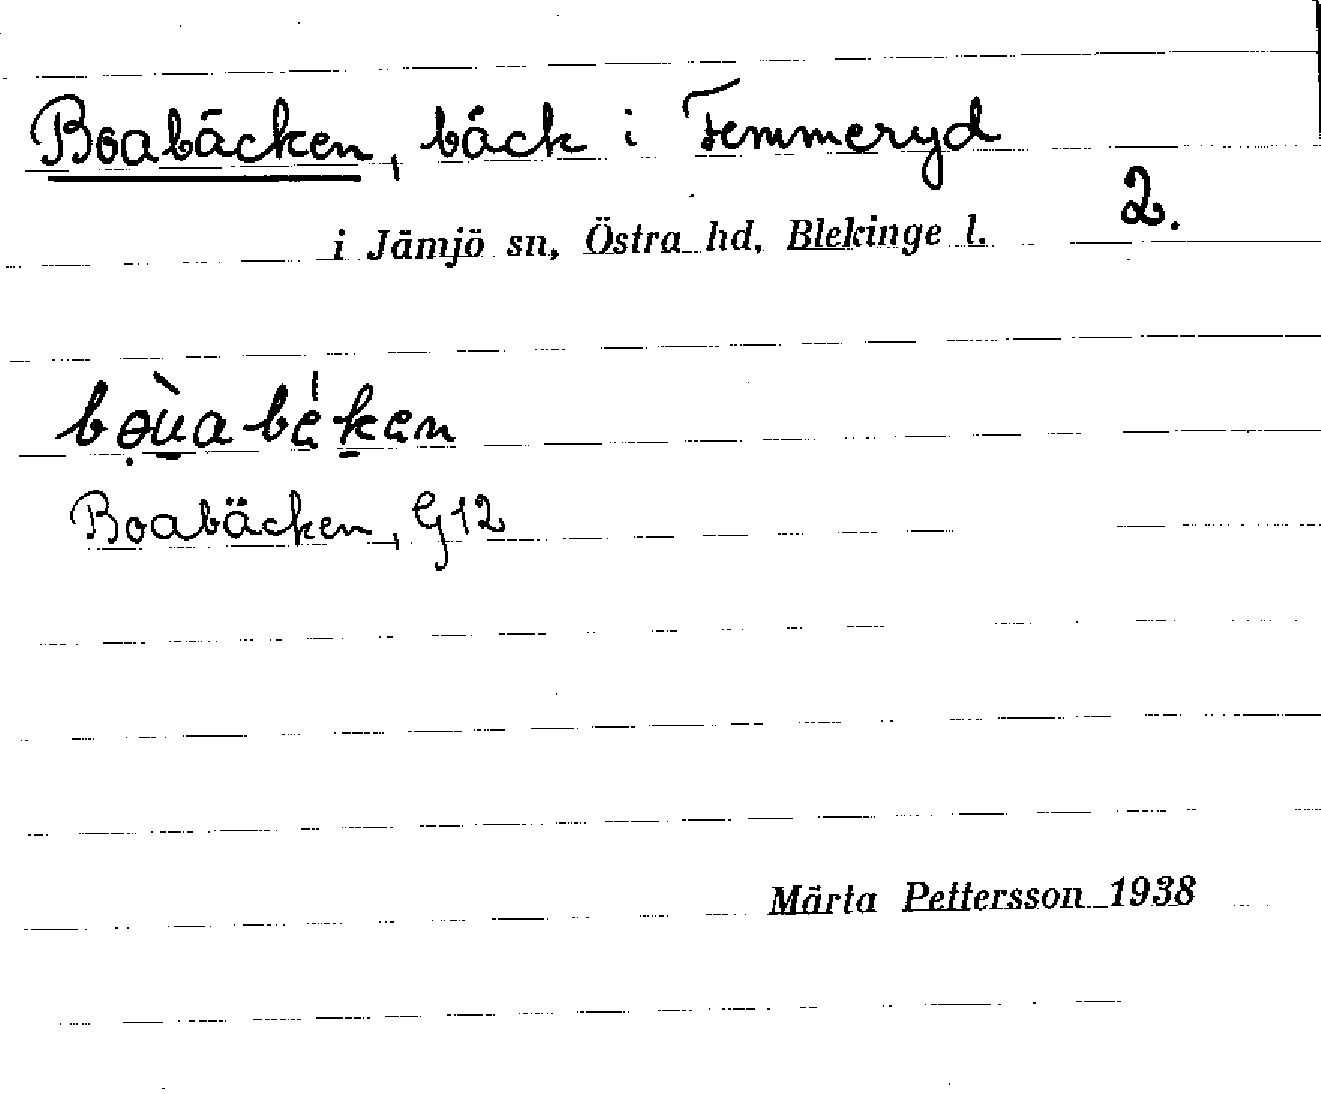 Boabäcken, bäck i Femmeryd
2.
i Jämjö sn, Östra hd, Blekinge l.
Boabäcken, G12
Märta Pettersson 1938